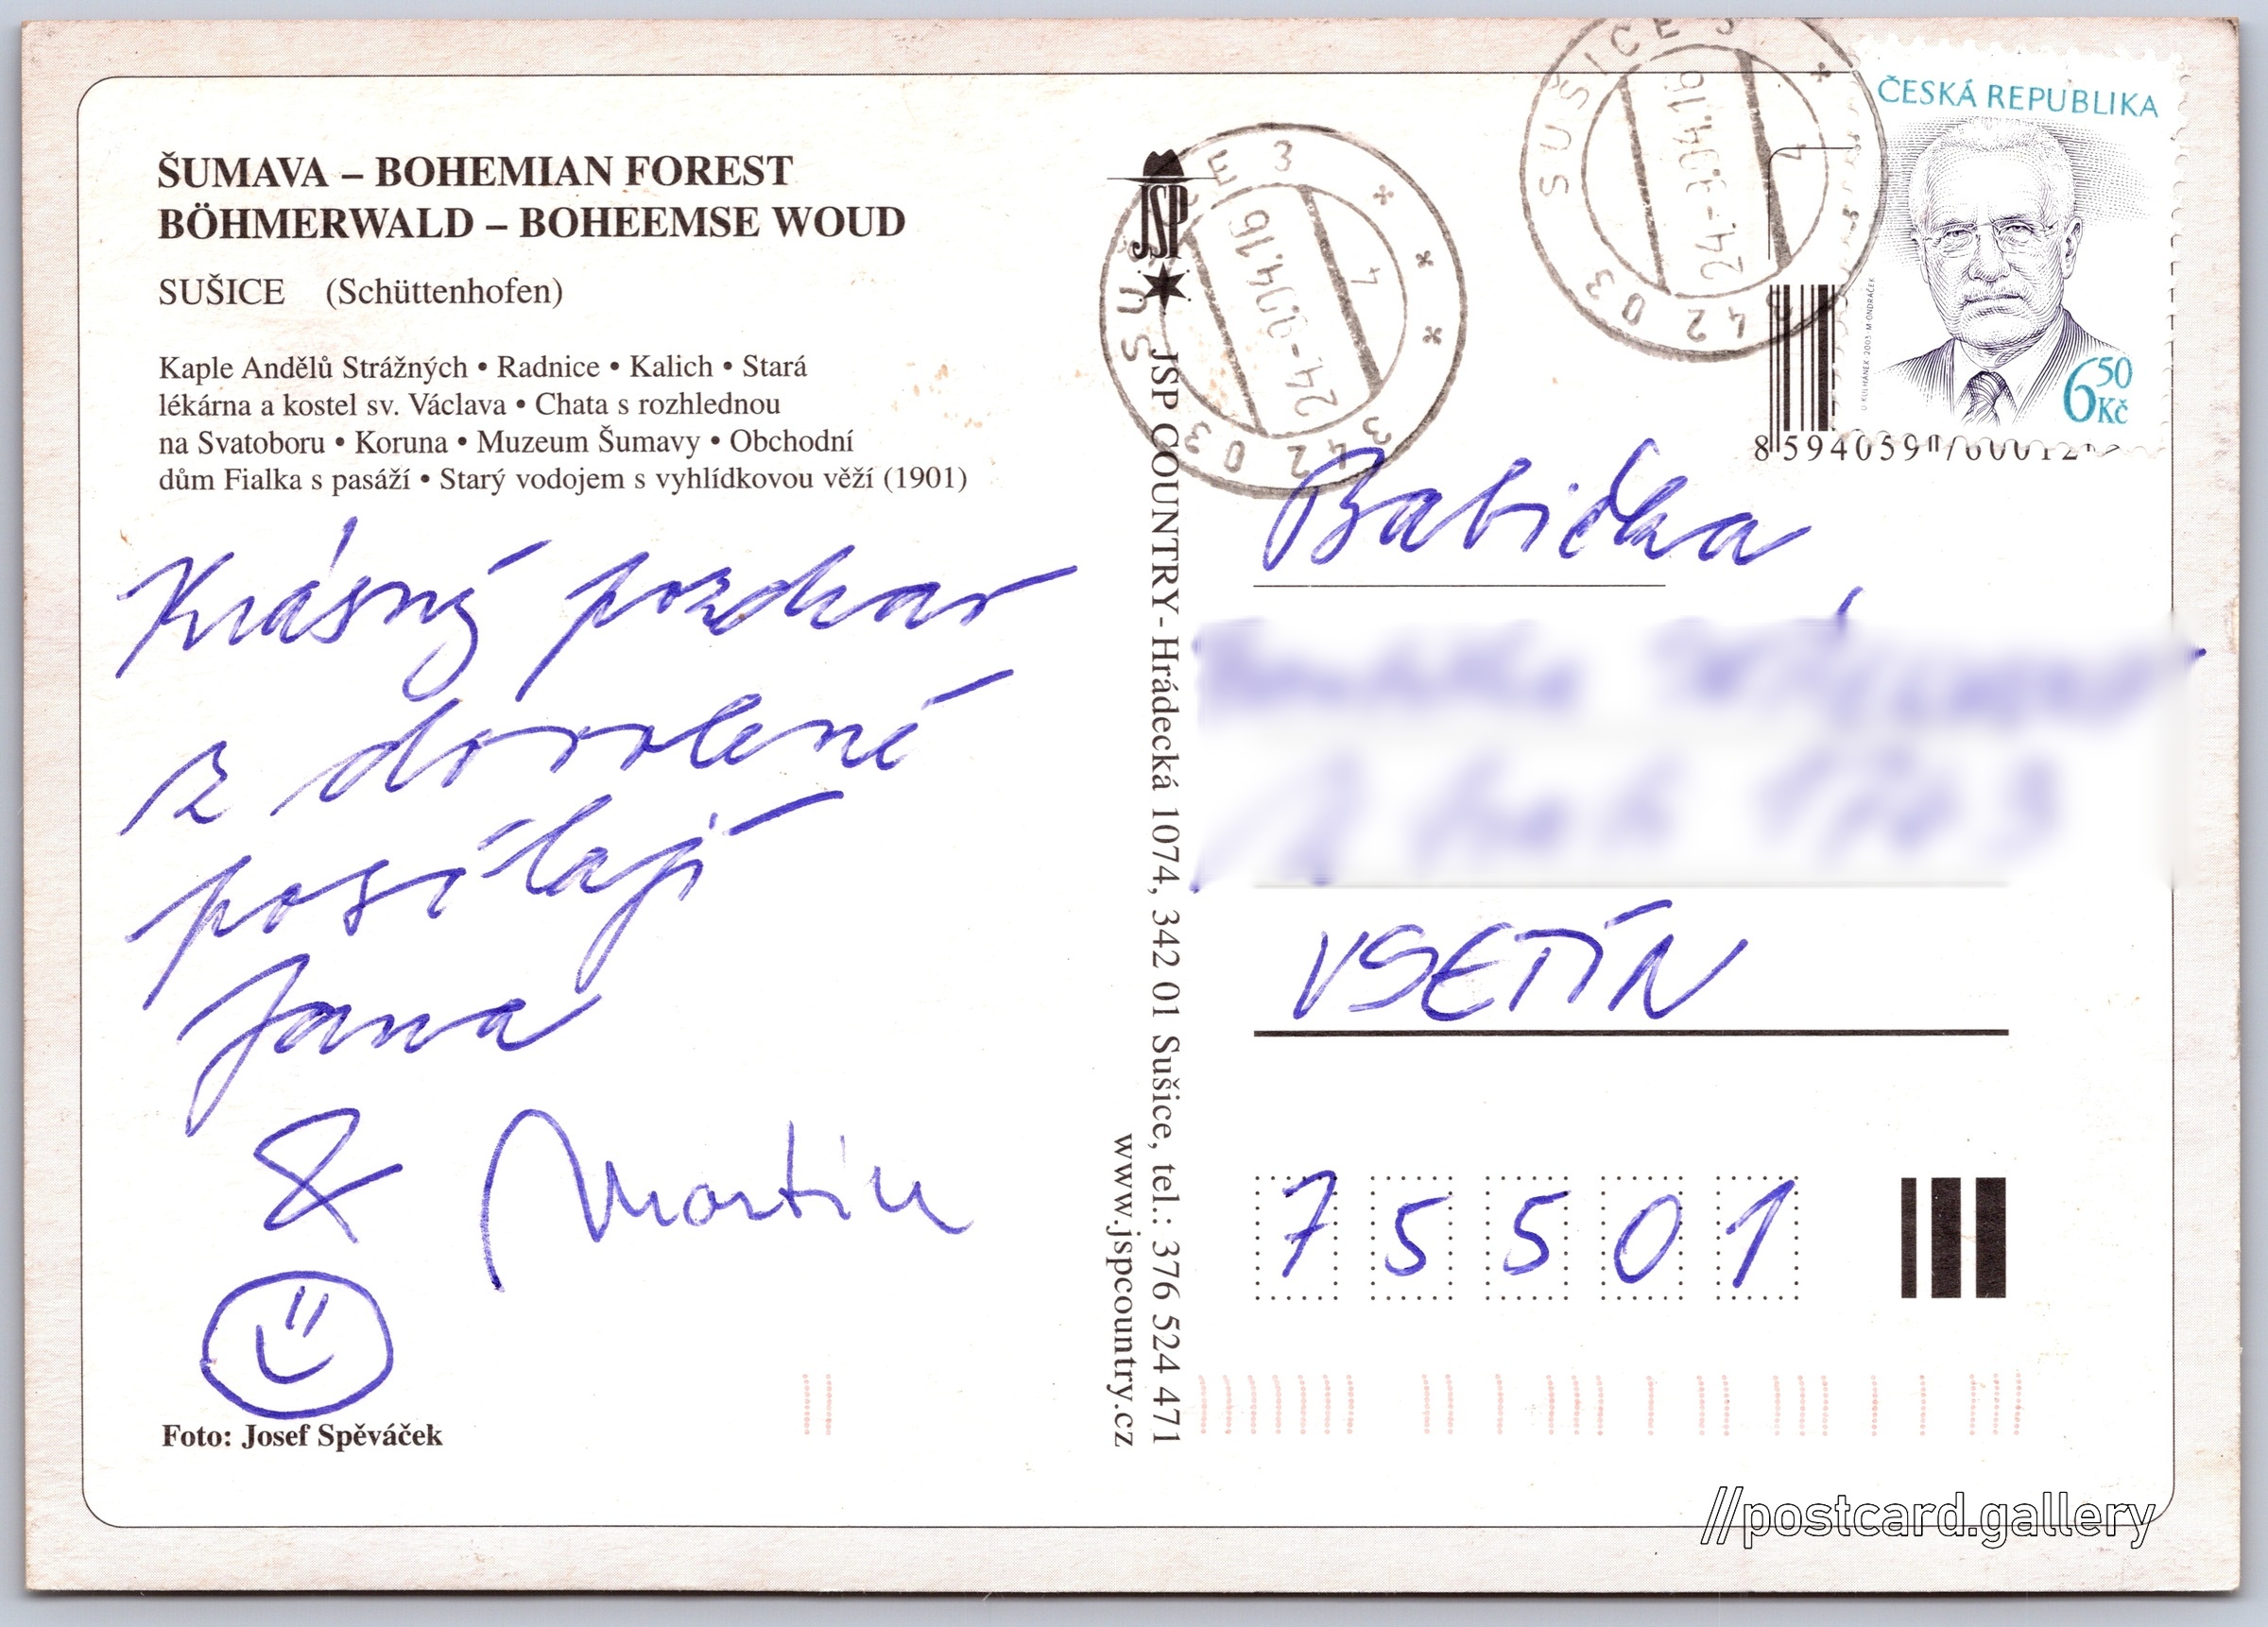 ŠUMAVA – BOHEMIAN FOREST
BÖHMERWALD – BOHEEMSE WOUD
SUŠICE (Schüttenhofen)
Kaple Andělů Strážných • Radnice • Kalich • Stará
lékárna a kostel sv. Václava • Chata s rozhlednou
na Svatoboru • Koruna • Muzeum Šumavy • Obchodní
dům Fialka s pasáží • Starý vodojem s vyhlídkovou věží (1901)
Krásný pozdrav
z dovolené
posílají
Jana
& Martin
Foto: Josef Spěváček
JSP
JSP COUNTRY - Hrádecká 1074, 342 01 Sušice, tel.: 376 524 471
www.jspcountry.cz
SUŠICE 3
342 03
ČESKÁ REPUBLIKA
6,50 Kč
Babička
VSETÍN
75501
//postcard.gallery